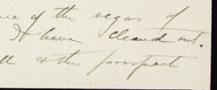 of the vegas of
I have cleaned out.
& the prospects